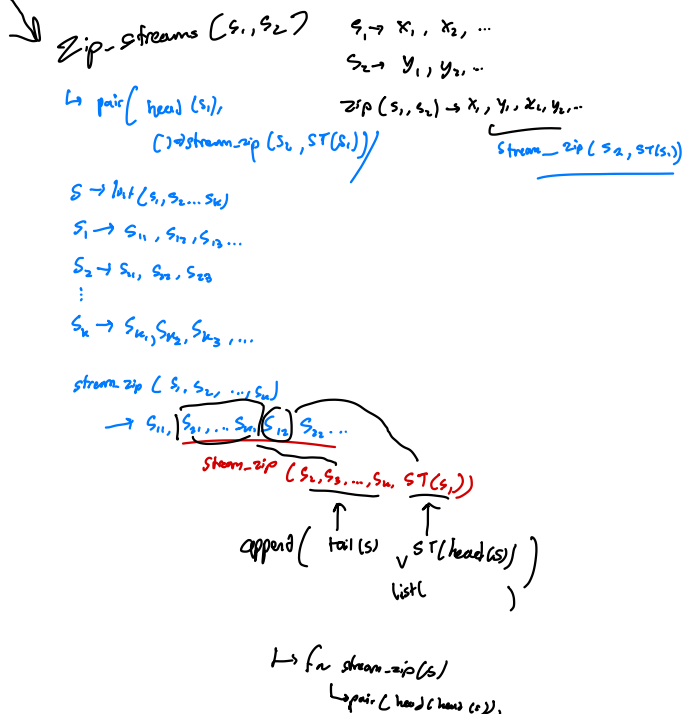 zip_streams (s₁, s₂)
s₁ → x₁, x₂, ...
s₂ → y₁, y₂, ...
zip (s₁, s₂) → x₁, y₁, x₂, y₂, ...
stream_zip (s₂, ST(s₁))
↳ pair( head (s₁),
() => stream_zip (s₂, ST(s₁)))
S → list (s₁, s₂ ... sₖ)
s₁ → s₁₁, s₁₂, s₁₃ ...
s₂ → s₂₁, s₂₂, s₂₃
⋮
sₖ → sₖ₁, sₖ₂, sₖ₃, ...
stream_zip ( s₁, s₂, ..., sₖ)
→ s₁₁, s₂₁, ... sₖ₁ s₁₂ s₂₂ ...
stream_zip (s₂, s₃, ..., sₖ, ST(s₁))
append( tail(s) ST(head(s)) )
list( )
↳ fn stream_zip(s)
↳ pair( head(head(s)),